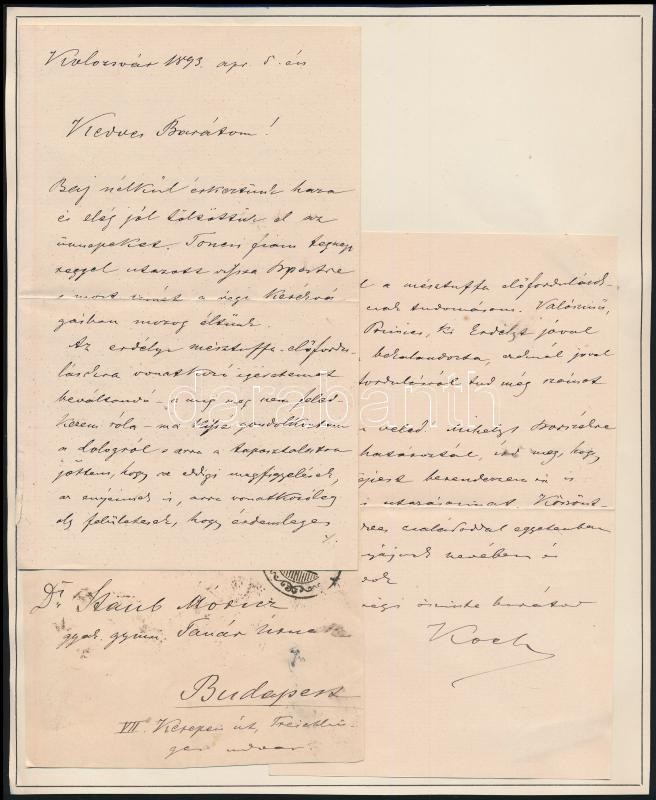 Kolozsvár 1893. apr. 5. én
Kedves Barátom!
Baj nélkül érkeztünk haza
és elég jól töltöttük el az
ünnepeket. Toncsi fiam tegnap
reggel utazott vissza Bpestre
s most ismét a régi kerékvá-
gásban mozog életünk.
Az erdélyi mésztuffa-előfordu-
lásokra vonatkozó igéretemet
beváltandó – a míg meg nem feled-
kezem róla – ma kissé gondolkoztam
a dologról s arra a tapasztalatra
jöttem, hogy az eddigi megfigyelések,
az enyéimek is, arra vonatkozólag
oly felületesek, hogy érdemleges
./.
a mésztuffa előfordulások-
nak tudomásom. Valószinű,
Primics, ki Erdélyt jóval
bekalandozta, ezeknél jóval
előfordulásról tud még számot
veled. Mihelyt Borszékre
határoztál, írd meg, hogy
berendezzem én is
utazásaimat. Köszönt
családoddal egyetemben
nevében is
régi őszinte barátod
Koch
Dr. Staub Móricz
gyak. gymn. Tanár Úrnak
Budapest
VII. Kerepesi út,
ger udvar.
darabanth